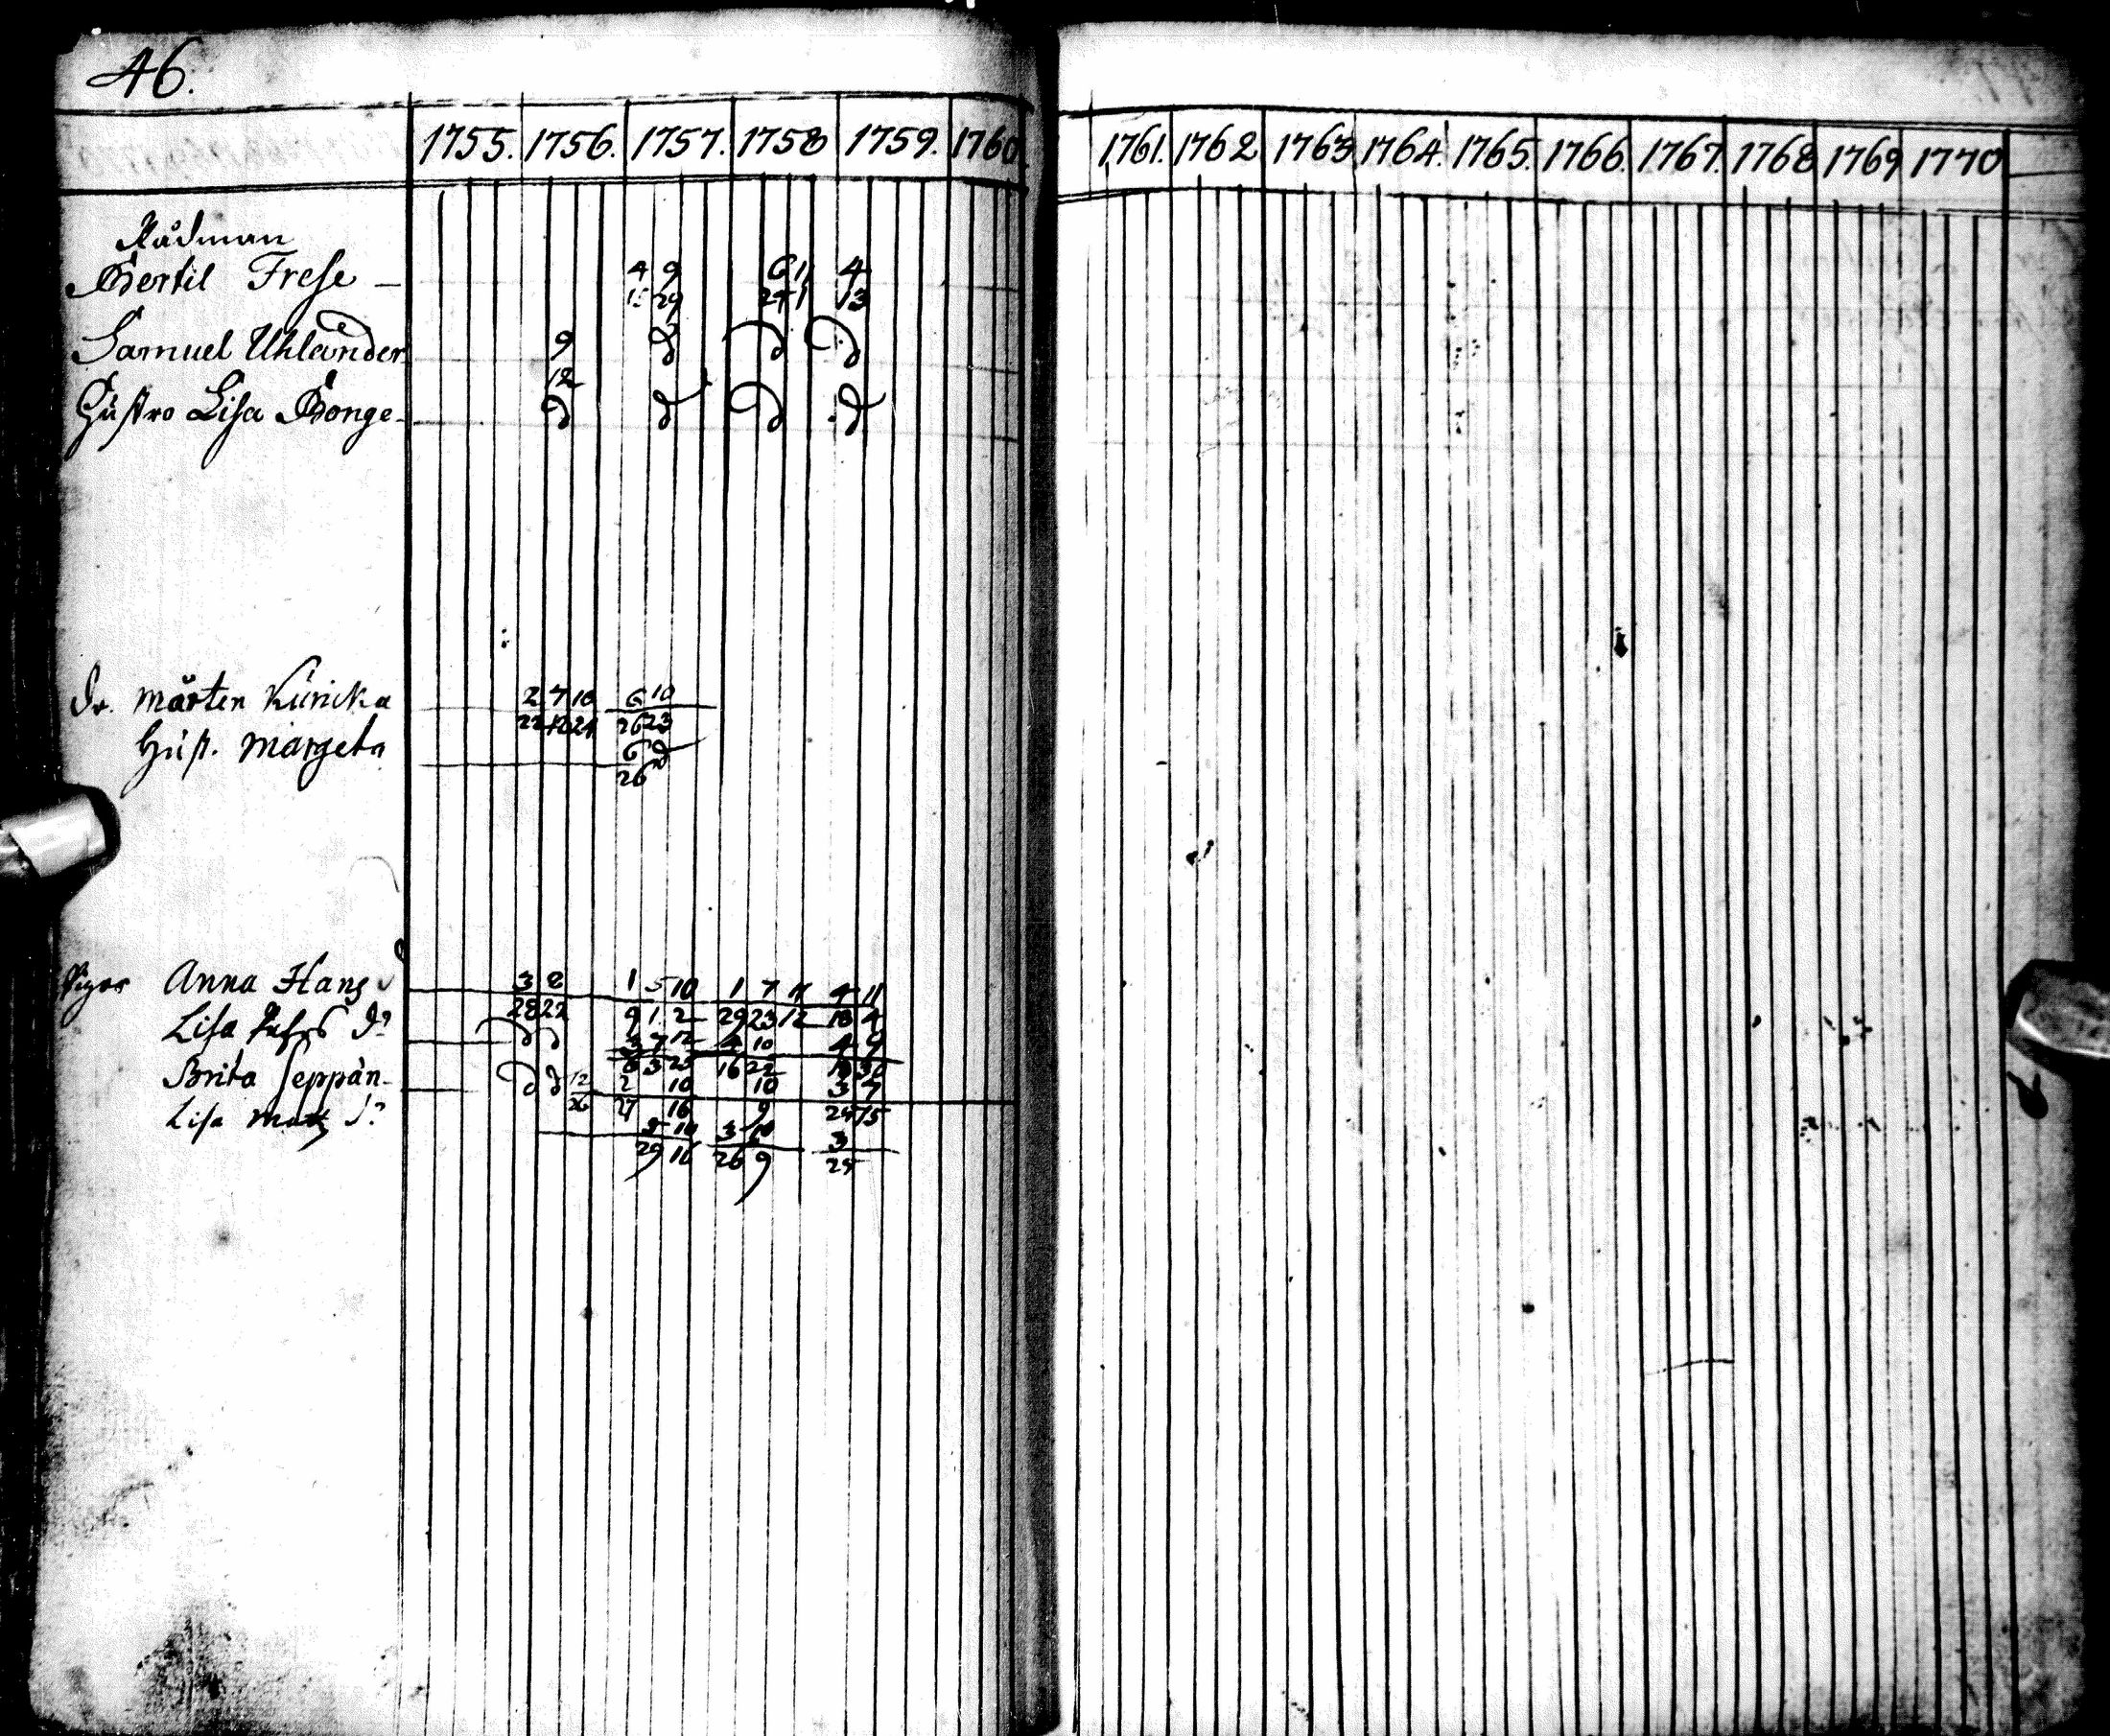 46.
1755. 1756. 1757. 1758 1759. 1760. 1761. 1762 1763 1764. 1765. 1766. 1767. 1768 1769 1770
Rådman
Bertil Frese
4 9 6 11 4
29 27 1 13
Samuel Uhlander 9
12
Hustro Lisa Bonge
dr. Mårten Kuricka 2 7 10 6 10
22 24 26 23
Hust. Margeta 6
26
Pigor Anna Hans 3 8 1 5 10 1 7 11 4 11
28 22 9 1 2 29 23 12 18 4
Lisa d:
3 7 12 4 10 4 9
8 3 25 16 22 18 30
Brita Seppän 12 2 10 10 3 7
26 27 16 9 24 15
Lisa Matz d:
3 10 3 10 3
29 16 26 9 24